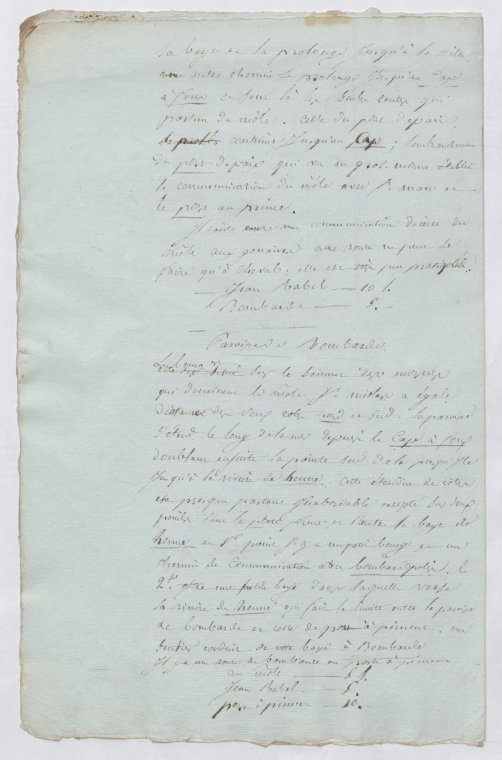 la baye et se prolonge jusqu'à la ville
un autre chemin se prolonge jusqu'au Cap
a foux ce sont là les toutes routes qui
partent du môle. celle du port de paix
continue jusqu'au Cap; l'embranchement
du port de paix qui va au gros morne établit
la communication du môle avec St. marc et
le port au prince.
Il existe encore une communication directe du
môle aux gonaives cette route ne peut se
faire qu'à cheval. elle est peu praticable.
Jean Rabel — 10 l.
Bombarde — 5. —
Paroisse de Bombarde
sur le sommet des mornes
qui dominent le môle St. nicolas a égale
distance des deux cotes nord et sud. la paroisse
s'étend le long de la mer depuis le Cap à foux
doublant ensuite la pointe sud de la presqu'île
jusqu'à la rivière de henne. cette étendue de côtes
est presque partout inabordable excepté sur deux
points la baye de
henne au 1er. point il y a un petit bourg et un
chemin de communication avec bombardopolis. le
2e. offre une petite baye dans laquelle verse
la rivière de henne qui fait la limite entre la paroisse
de bombarde et celle de port à piment. un
sentier conduit de cette baye à Bombarde
il y a une route de bombarde au port à piment
au môle — 5 l.
Jean Rabel — 5.
port à piment — 10.